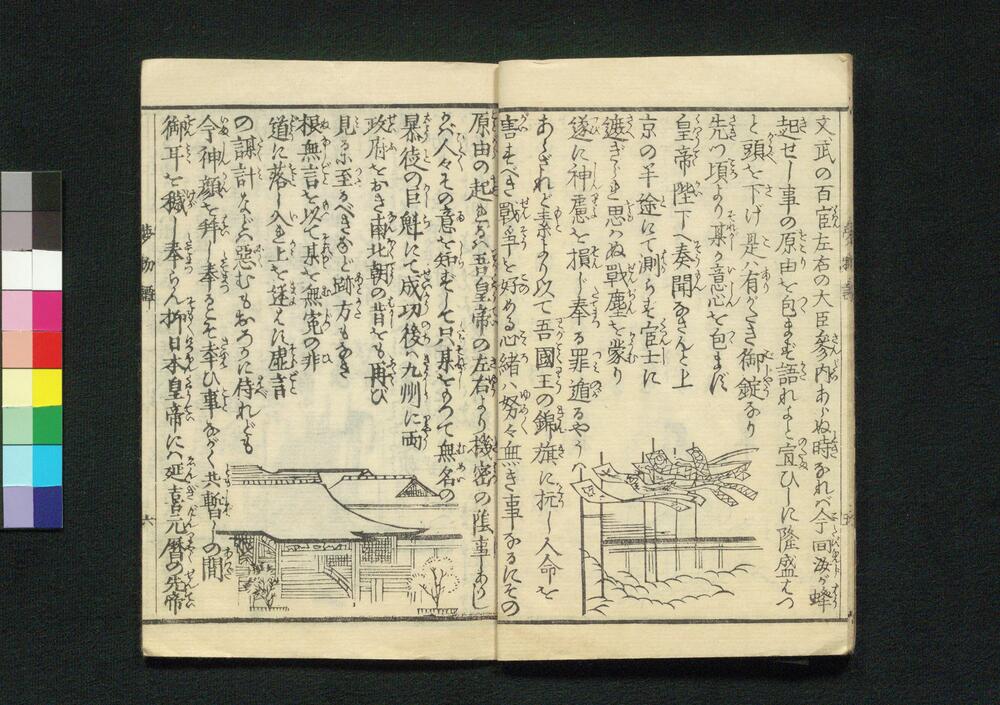 文武の百官左右の大臣參内あらぬ時なれバ今回汝が蜂
起せし事の原由を包まず語れよと宣ひしに隆盛はつ
と頭を下げ是ハ有がたき御錠なり
先つ頃より某が意心を包まず
皇帝陛下へ奏聞なさんと上
京の半途にて測らず官士に
遮ぎられ思ハぬ戰塵を蒙り
遂に神慮を損じ奉る罪遁るやうハ
あらざれど素より以て吾國王の錦旗に抗し人命を
害すべき戰爭を好める心緒ハ努々無き事なるにその
原由の起れるハ吾皇帝の左右より機密の陰事ありし
かバ人々その意を知ずして只某をもつて無名の
暴徒の巨魁にて成功後ハ九州に両
政府をおき南北朝の昔をも再び
見るに至るべきなど跡方もなき
根無言を以て某を無寃の非
道に落し入れ上を迷ハす虚言
の謀計などハ惡むもおろかに侍れども
今神顔を拜し奉るこそ幸ひ事ながく共暫しの間
御耳を穢し奉らん抑日本皇帝にハ延喜元暦の先帝
夢物語
六